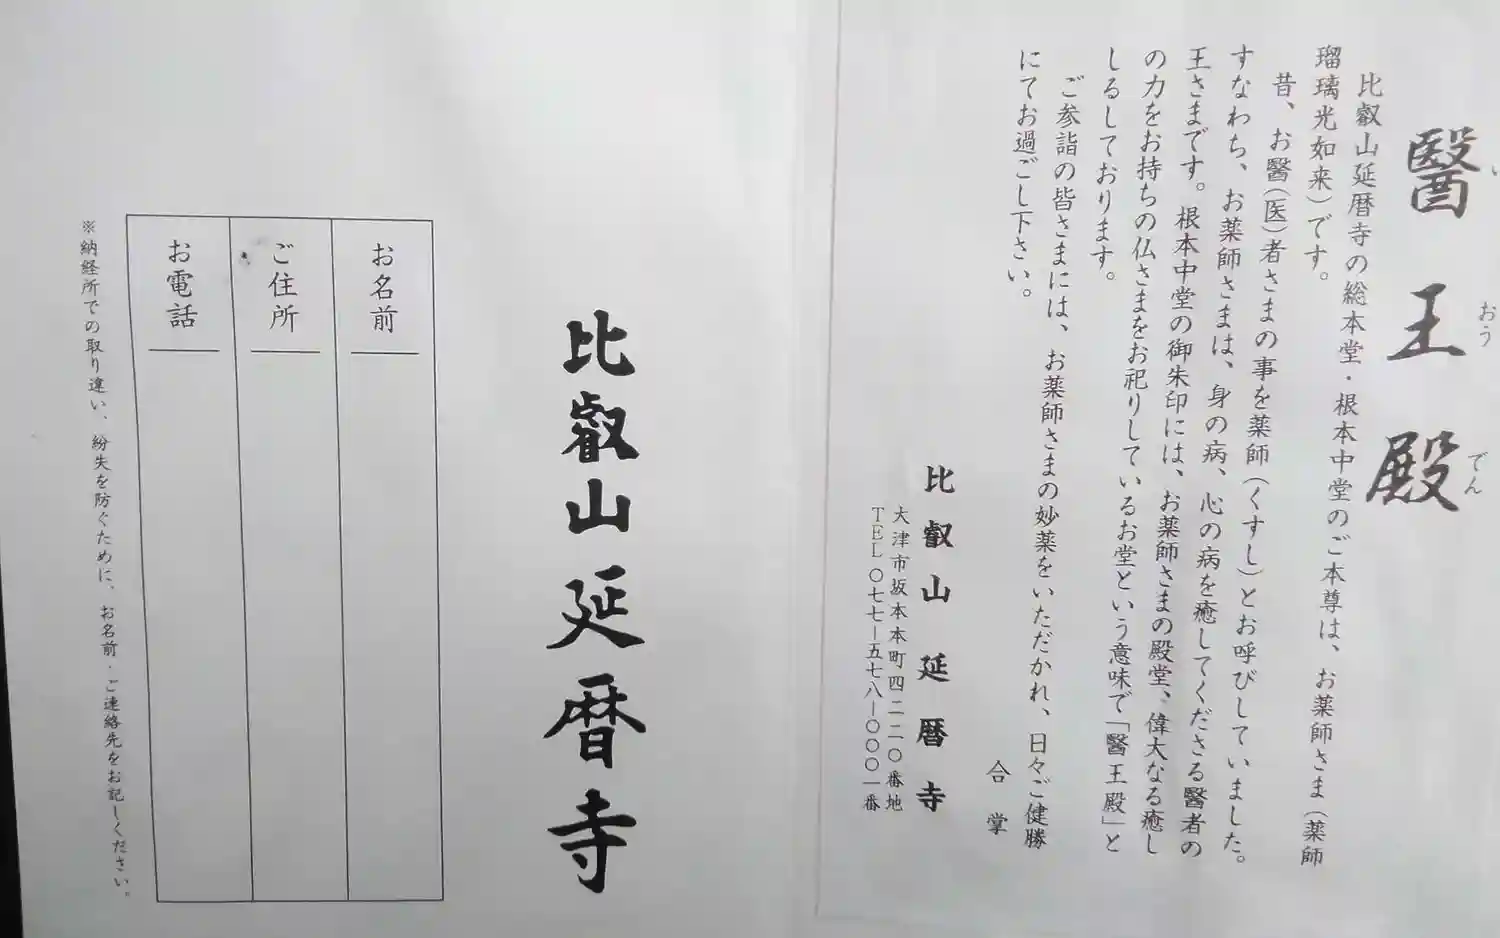 醫王殿
い
おう
でん
比叡山延暦寺の総本堂・根本中堂のご本尊は、お薬師さま(薬師
瑠璃光如来)です。
昔、お醫(医)者さまの事を薬師(くすし)とお呼びしていました。
すなわち、お薬師さまは、身の病、心の病を癒してくださる醫者の
王さまです。根本中堂の御朱印には、お薬師さまの殿堂、偉大なる癒し
の力をお持ちの仏さまをお祀りしているお堂という意味で「醫王殿」と
しるしております。
ご参詣の皆さまには、お薬師さまの妙薬をいただかれ、日々ご健勝
にてお過ごし下さい。
合掌
比叡山延暦寺
大津市坂本本町四二二〇番地
TEL〇七七ー五七八ー〇〇〇一番
比叡山延暦寺
お名前
ご住所
お電話
※納経所での取り違い、紛失を防ぐために、お名前・ご連絡先をお記しください。